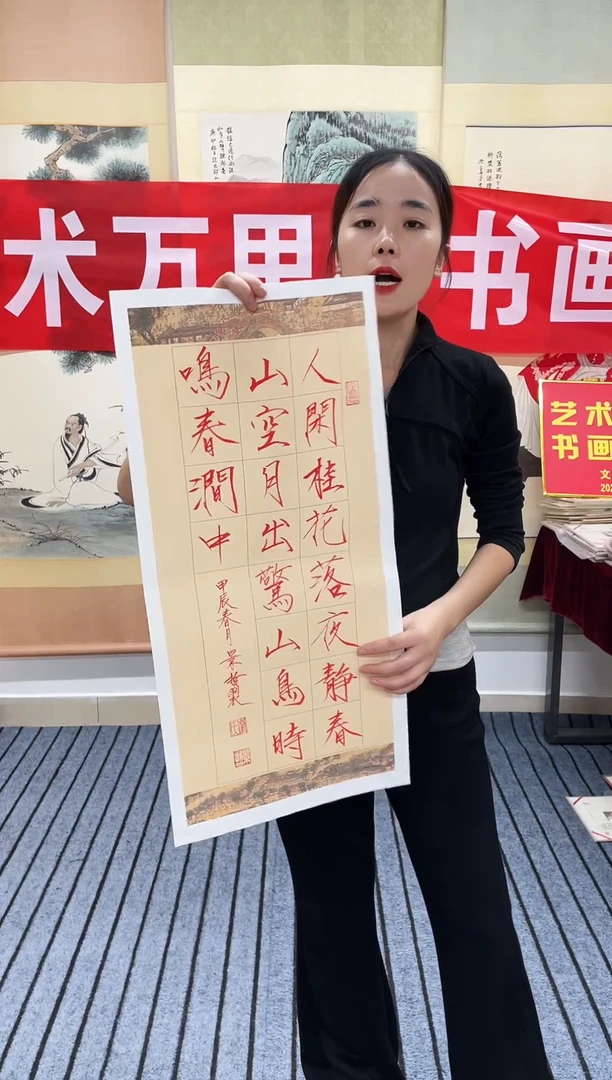 术万里
书画
人閑桂花落夜靜春
山空月出驚山鳥時
鳴春澗中
甲辰春月
艺术
书画
文
202